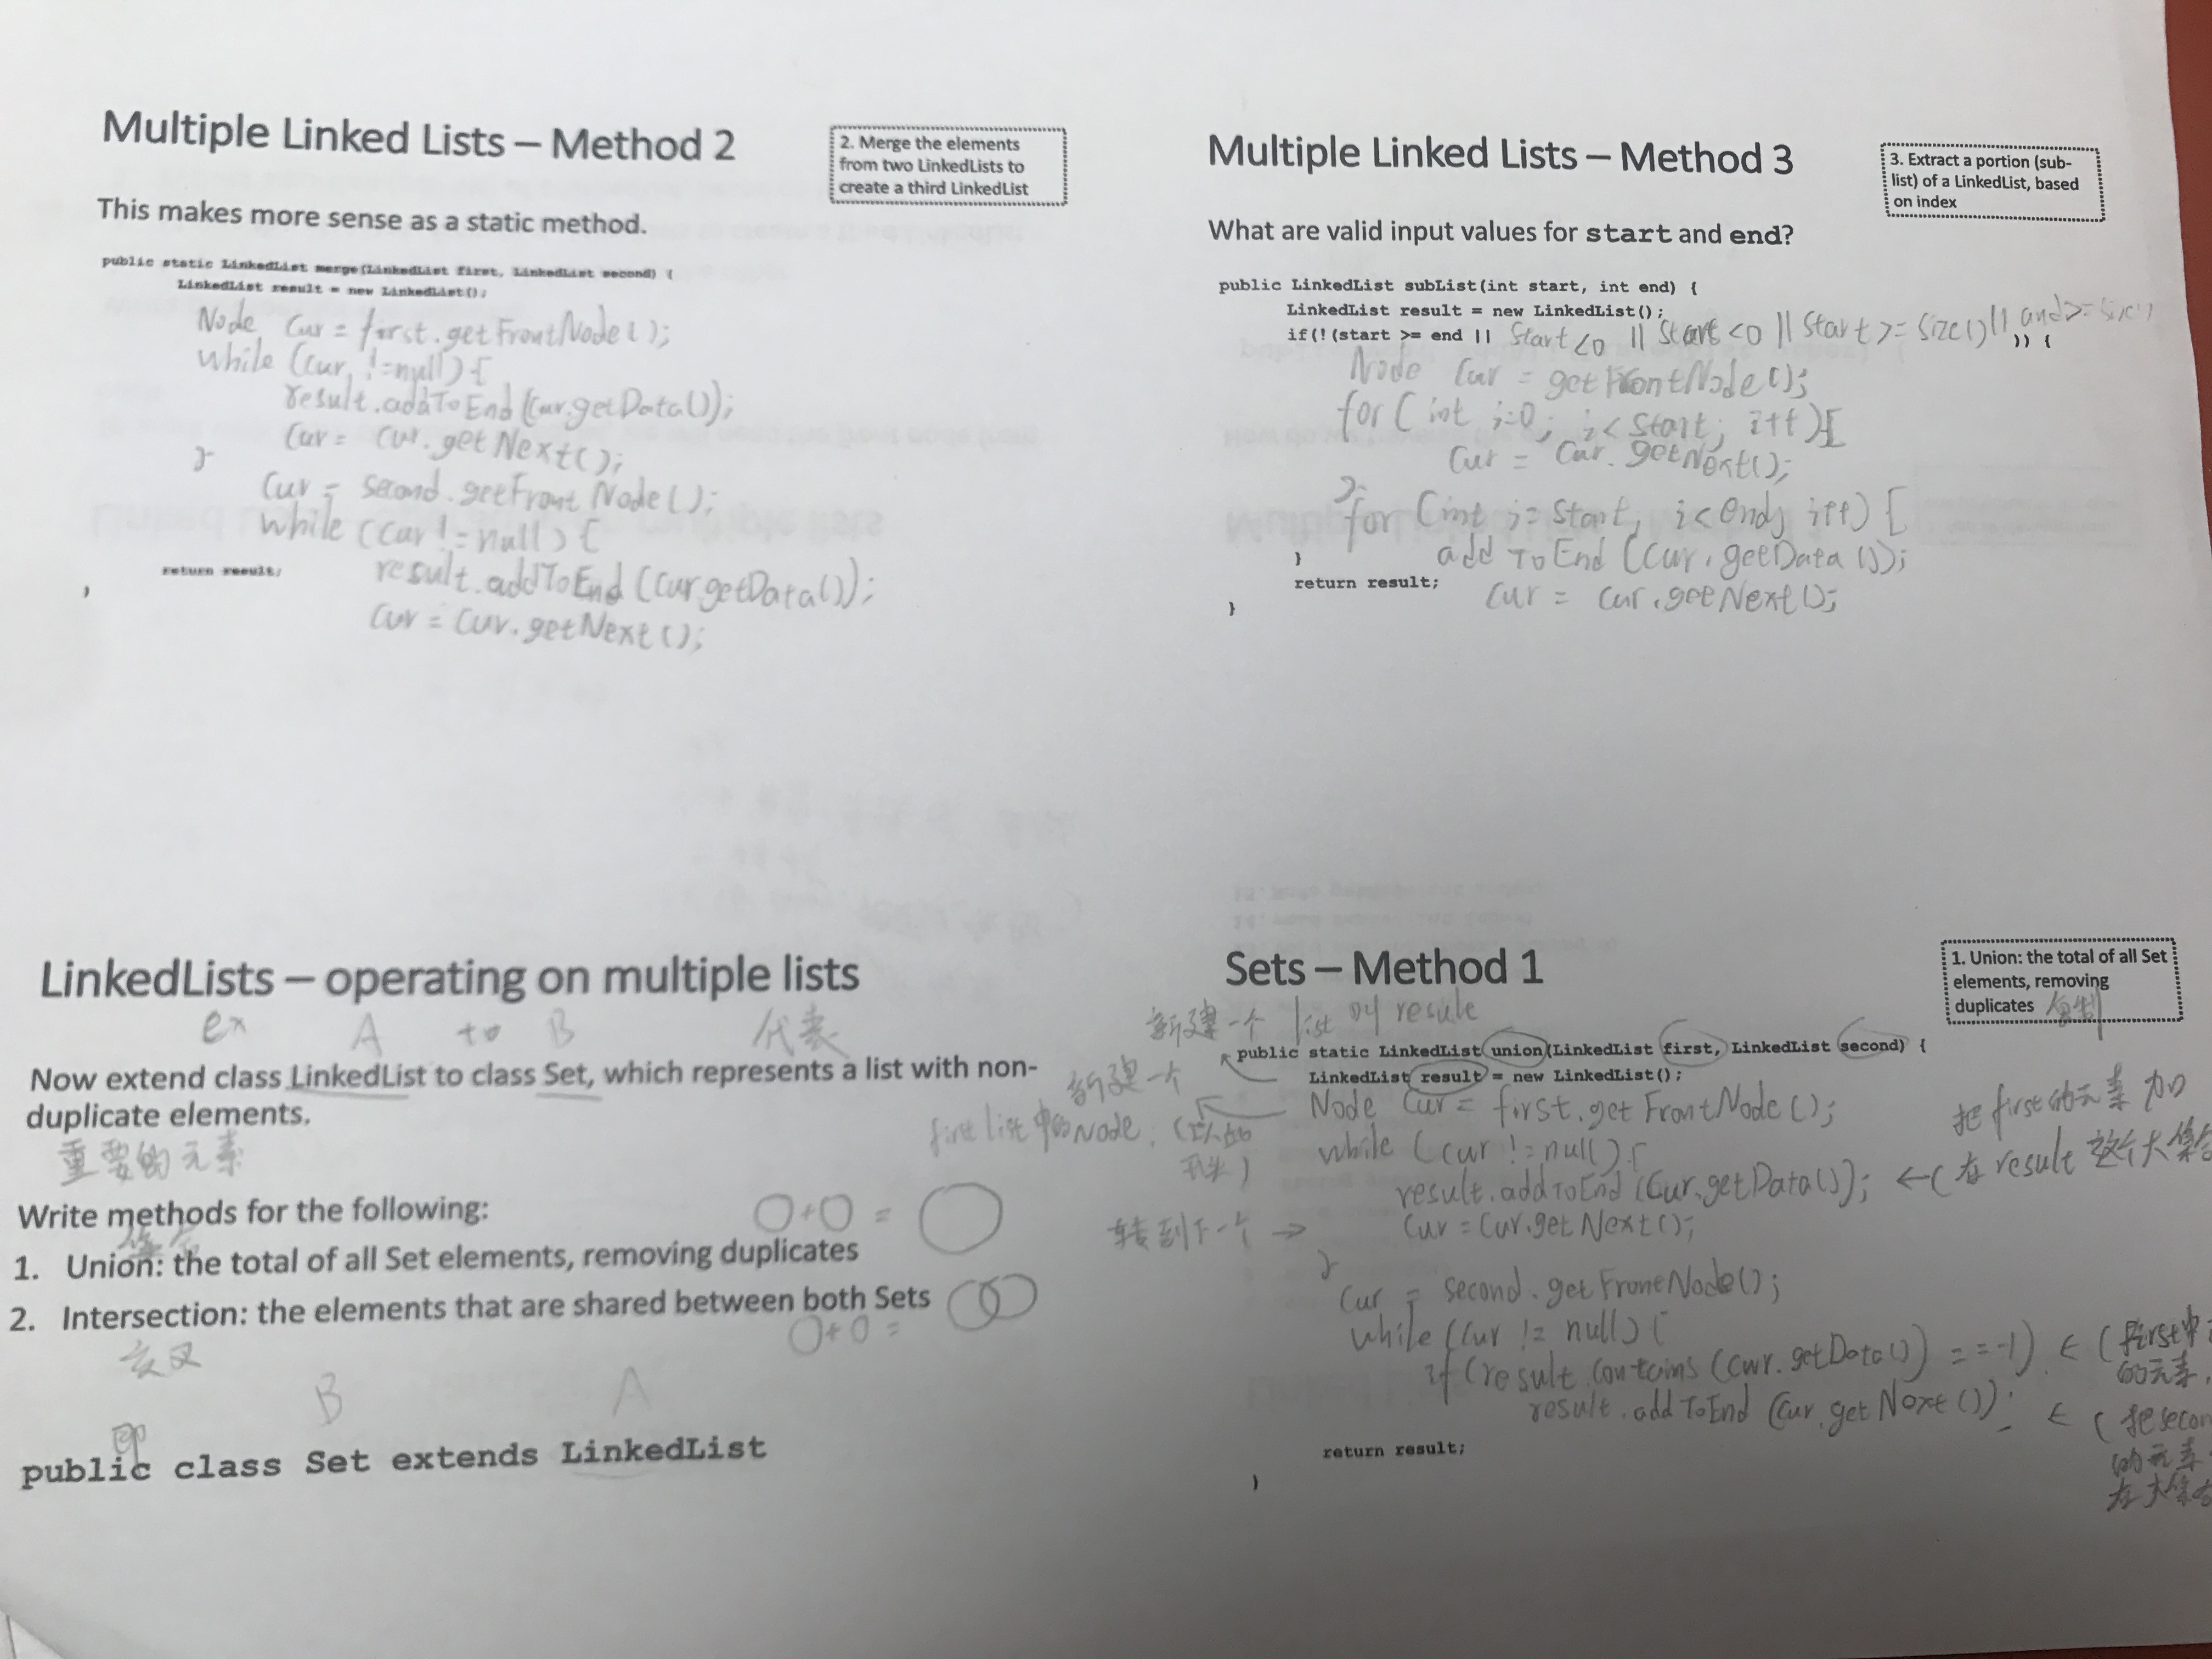 Multiple Linked Lists – Method 2
2. Merge the elements
from two LinkedLists to
create a third LinkedList
This makes more sense as a static method.
public static LinkedList merge(LinkedList first, LinkedList second) {
LinkedList result = new LinkedList();
Node cur = first.getFrontNode();
while (cur != null) {
result.addToEnd(cur.getData());
cur = cur.getNext();
}
cur = second.getFrontNode();
while (cur != null) {
result.addToEnd(cur.getData());
cur = cur.getNext();
return result;
}
Multiple Linked Lists – Method 3
3. Extract a portion (sub-
list) of a LinkedList, based
on index
What are valid input values for start and end?
public LinkedList subList(int start, int end) {
LinkedList result = new LinkedList();
if(!(start >= end || start <0 || start <0 || start >= size() || end >= size() )) {
Node cur = getFrontNode();
for (int i=0; i<start; i++){
cur = cur.getNext();
}
for (int i=start; i<end; i++) {
addToEnd(cur.getData());
cur = cur.getNext();
}
return result;
}
LinkedLists – operating on multiple lists
ex A to B 代表
Now extend class LinkedList to class Set, which represents a list with non-
duplicate elements.
重复的元素
Write methods for the following:
O+O =
1. Union: the total of all Set elements, removing duplicates
2. Intersection: the elements that are shared between both Sets
O+O =
交叉
B A
public class Set extends LinkedList
Sets – Method 1
1. Union: the total of all Set
elements, removing
duplicates
list of result
public static LinkedList union(LinkedList first, LinkedList second) {
LinkedList result = new LinkedList();
Node cur = first.getFrontNode();
first list 中的 Node
while (cur != null) {
result.addToEnd(cur.getData());
把 first 的元素加
在 result
cur = cur.getNext();
}
cur = second.getFrontNode();
while (cur != null) {
if (result.contains(cur.getData()) == -1)
result.addToEnd(cur.getNext());
return result;
}